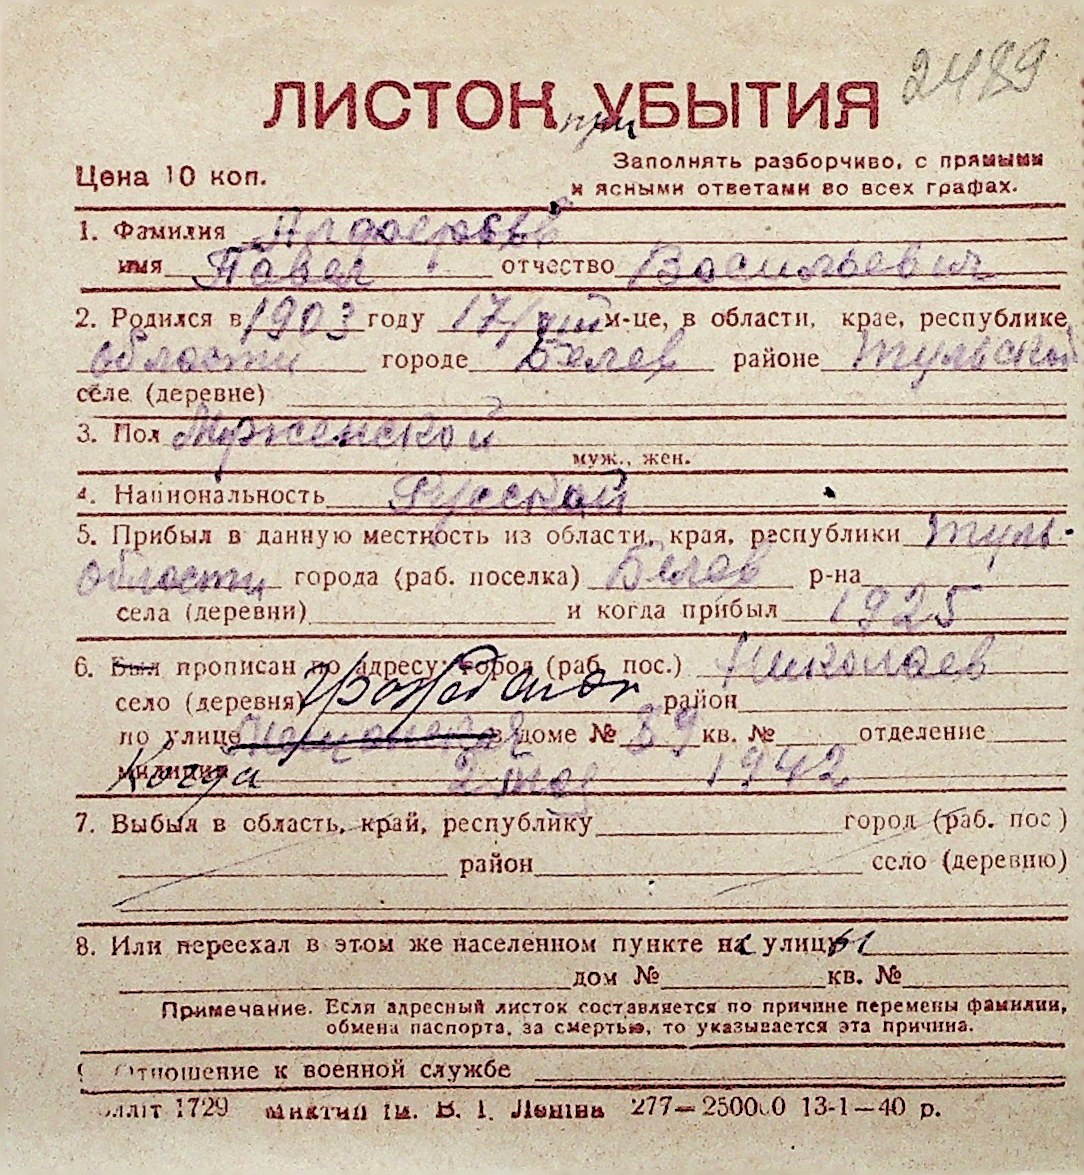 2489
ЛИСТОК УБЫТИЯ
при
Цена 10 коп.
Заполнять разборчиво, с прямыми
и ясными ответами во всех графах.
1. Фамилия
имя Павел отчество Васильевич
2. Родился в 1903 году 17/ м-це, в области, крае, республике
области городе Белев районе Тульской
селе (деревне)
3. Пол Муженской
муж., жен.
4. Национальность Русской
5. Прибыл в данную местность из области, края, республики Туль-
области города (раб. поселка) Белев р-на
села (деревни) и когда прибыл 1925
6. Был прописан по адресу: город (раб. пос.) Николаев
село (деревня) гражданство район
по улице в доме № 89 кв. № отделение
милиции Когда 2 мая 1942
7. Выбыл в область, край, республику город (раб. пос.)
район село (деревню)
8. Или переехал в этом же населенном пункте на улицу
дом № кв. №
Примечание. Если адресный листок составляется по причине перемены фамилии,
обмена паспорта, за смертью, то указывается эта причина.
Отношение к военной службе
1729 им. В. І. Леніна 277—250000 13-1—40 р.